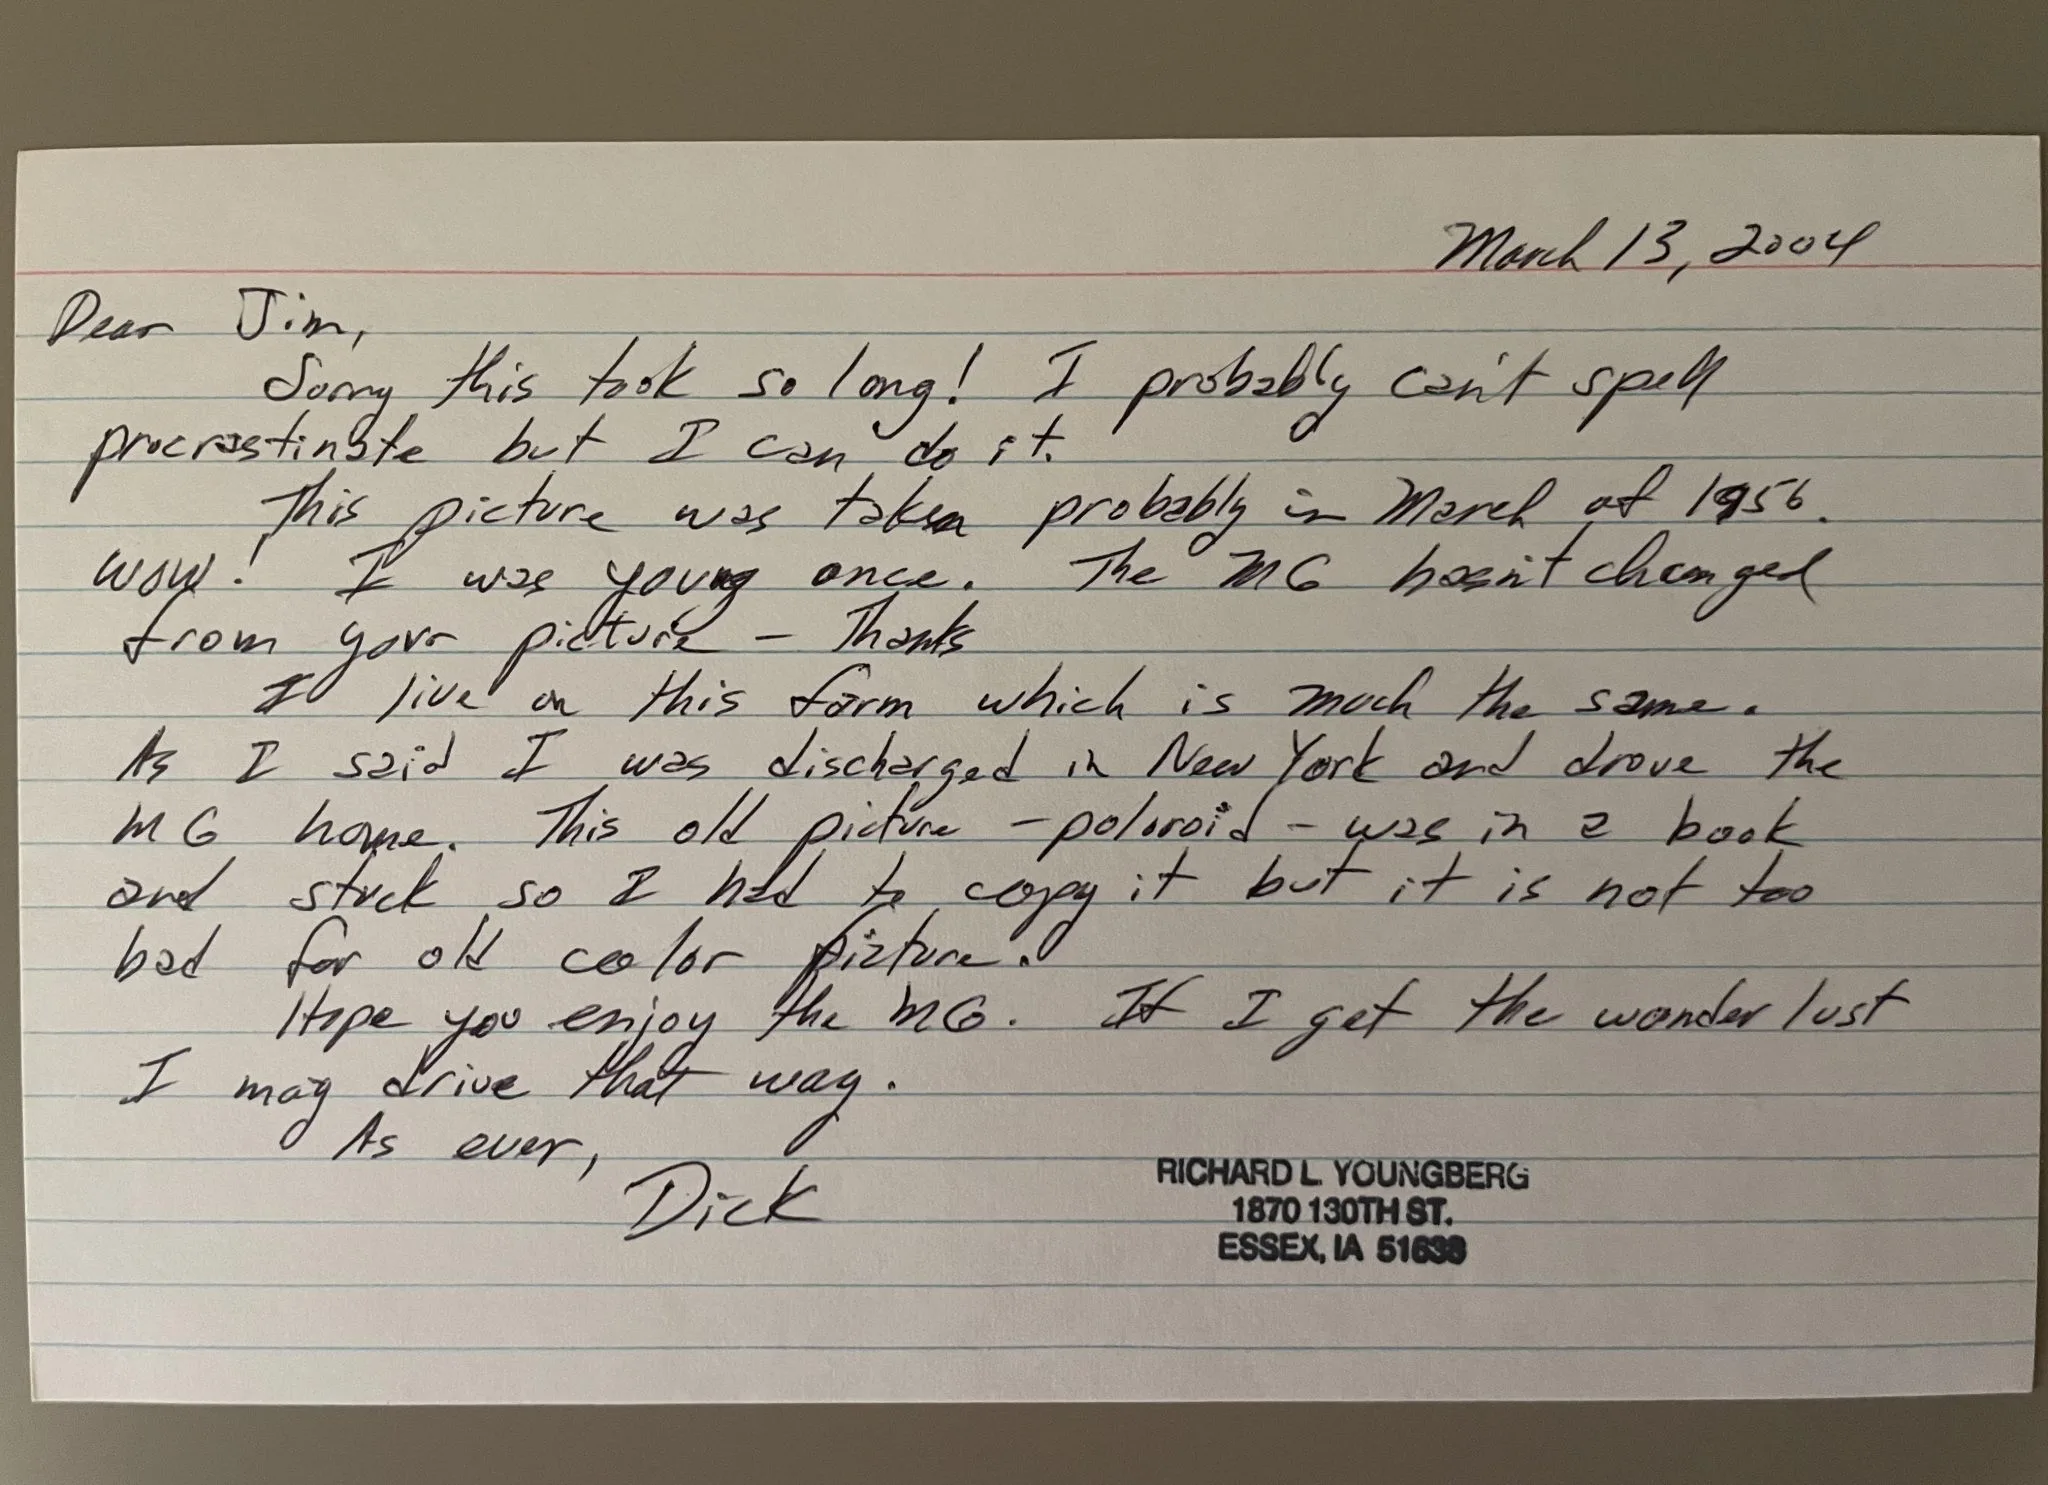 March 13, 2004
Dear Jim,
Sorry this took so long! I probably can't spell
procrastinate but I can do it.
This picture was taken probably in March of 1956.
Wow! I was young once. The MG hasn't changed
from your picture - Thanks
I live on this farm which is much the same.
As I said I was discharged in New York and drove the
MG home. This old picture - poloroid - was in a book
and stuck so I had to copy it but it is not too
bad for old color picture.
Hope you enjoy the MG. If I get the wonder lust
I may drive that way.
As ever,
Dick
RICHARD L. YOUNGBERG
1870 130TH ST.
ESSEX, IA 51638